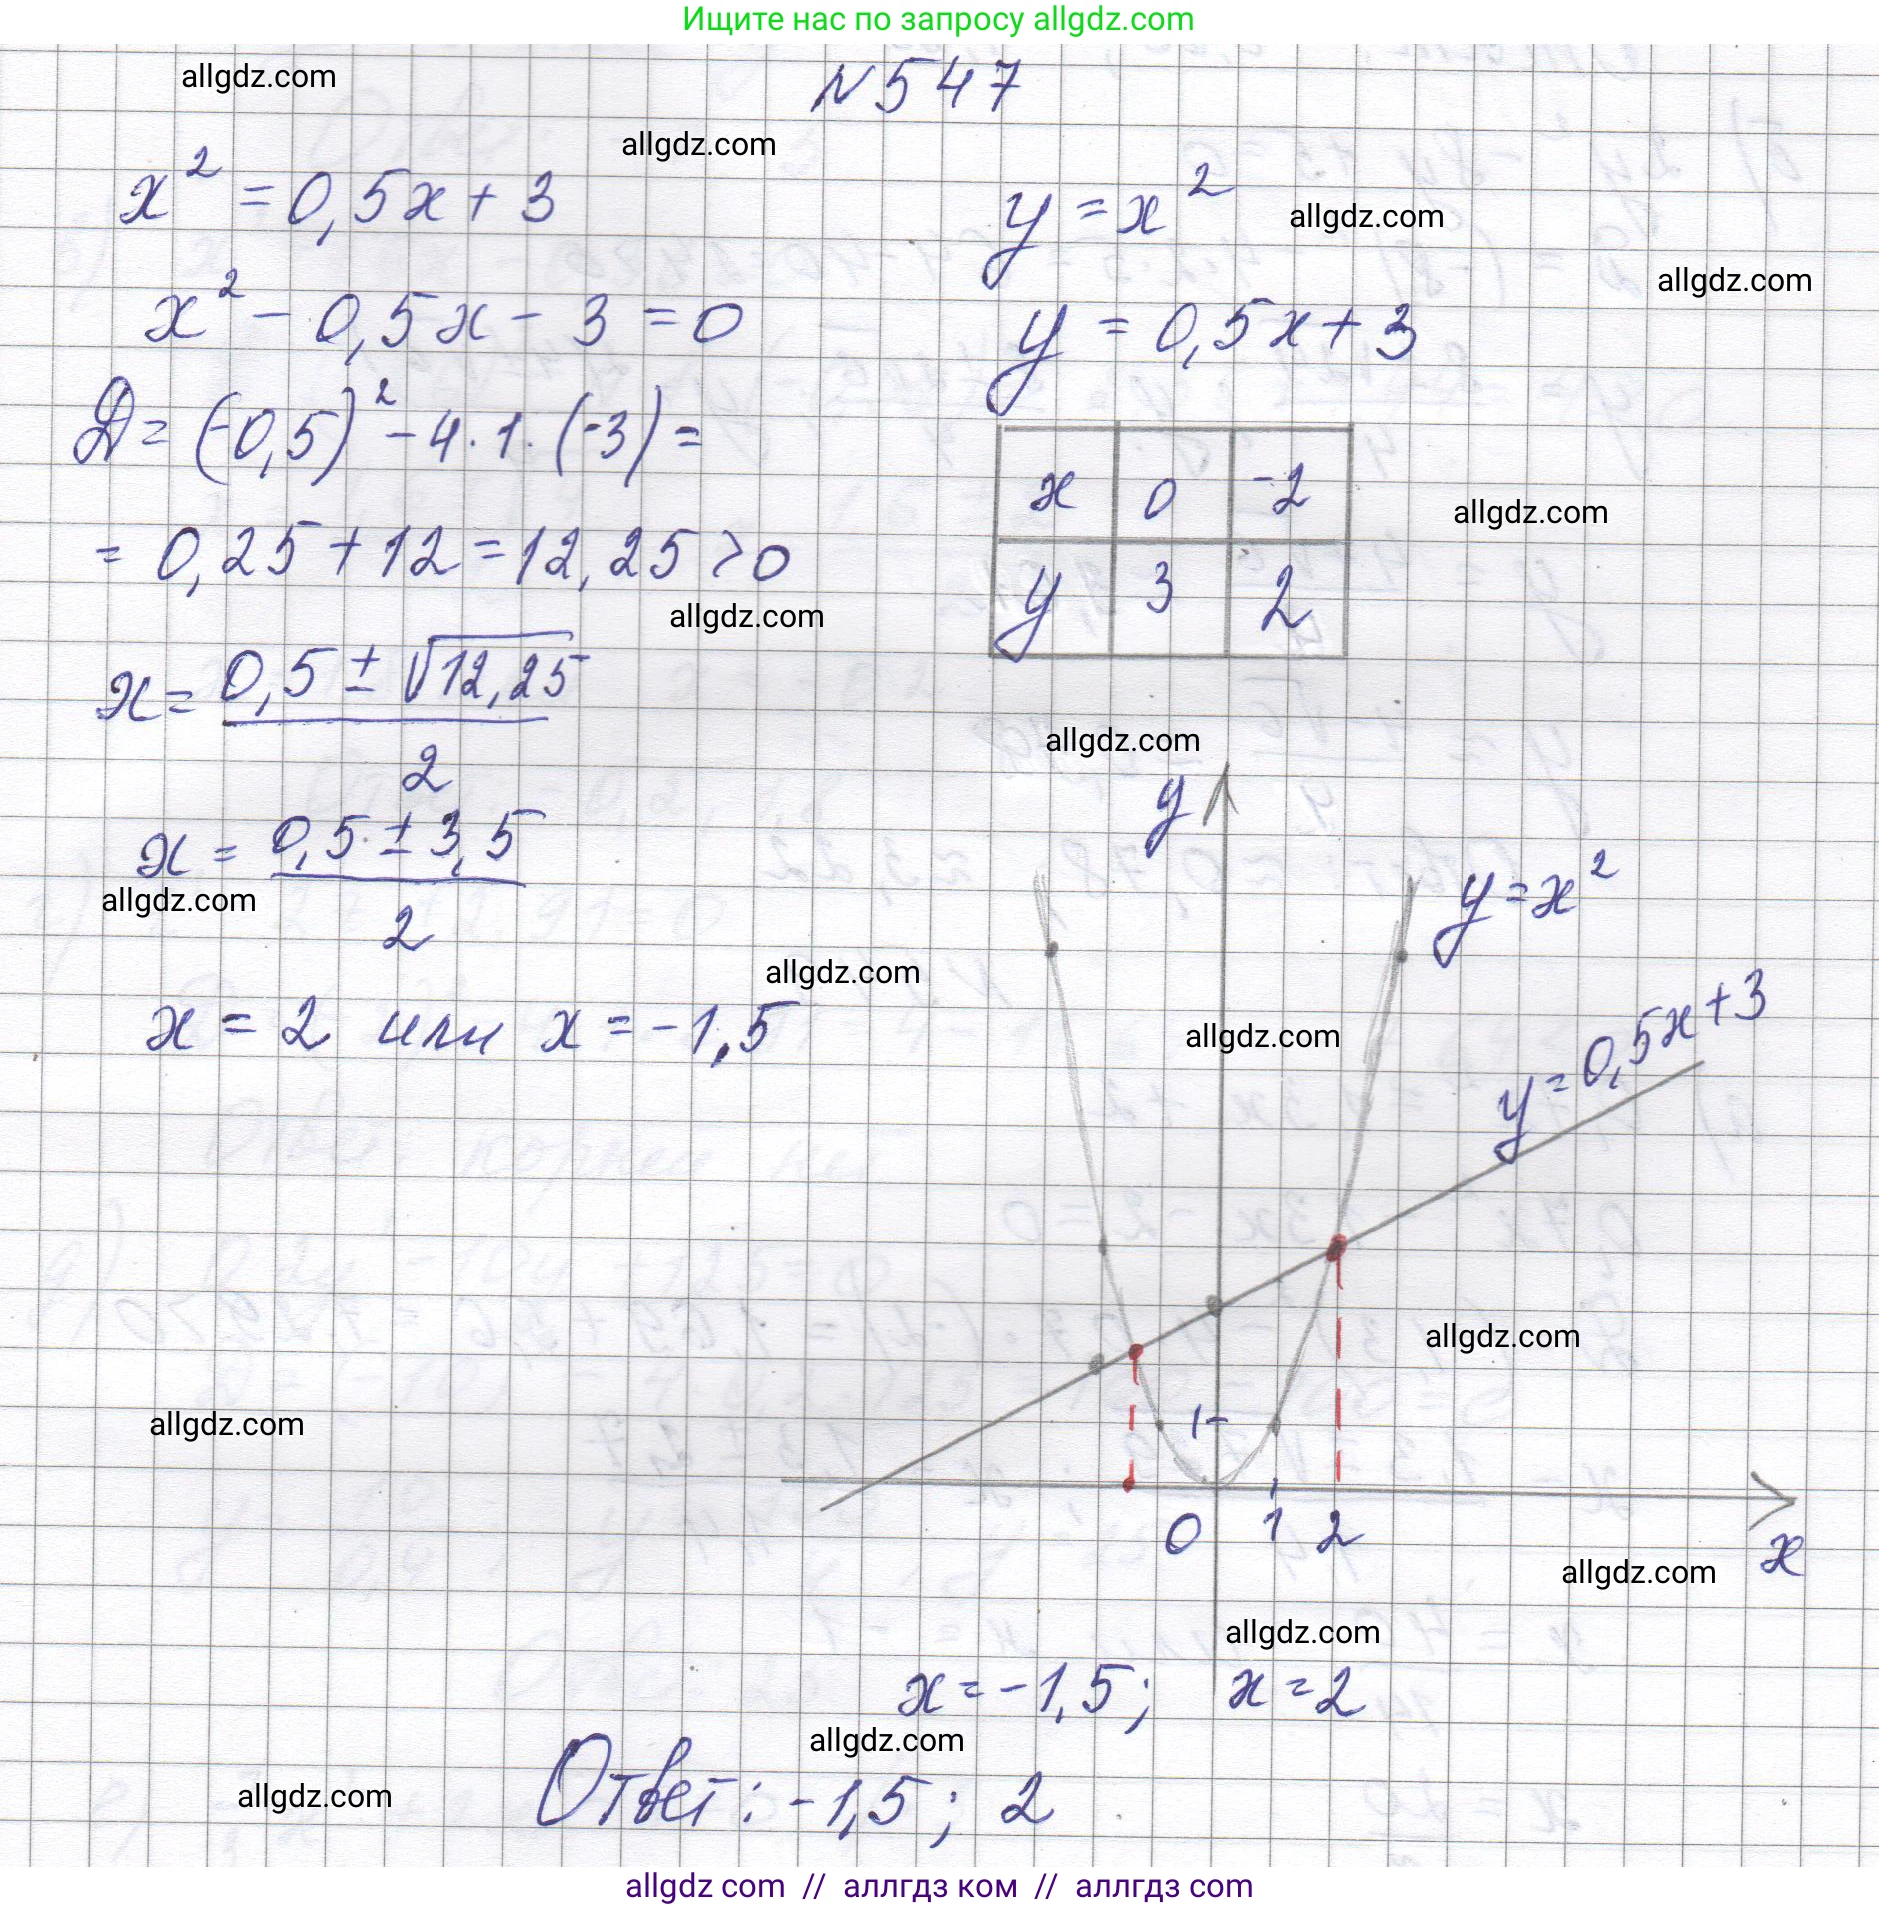 Ищите нас по запросу allgdz.com
allgdz.com
N 547
allgdz.com
x² = 0,5x + 3
x² - 0,5x - 3 = 0
D = (-0,5)² - 4 · 1 · (-3) =
= 0,25 + 12 = 12,25 > 0
allgdz.com
x = (0,5 ± √12,25) / 2
x = (0,5 ± 3,5) / 2
allgdz.com
allgdz.com
x = 2 или x = -1,5
y = x²
allgdz.com
allgdz.com
y = 0,5x + 3
x 0 -2
y 3 2
allgdz.com
allgdz.com
y
y = x²
allgdz.com
y = 0,5x + 3
allgdz.com
allgdz.com
1
0 1 2
x
allgdz.com
allgdz.com
x = -1,5; x = 2
allgdz.com
allgdz.com
Ответ: -1,5; 2
allgdz com // аллгдз ком // аллгдз com